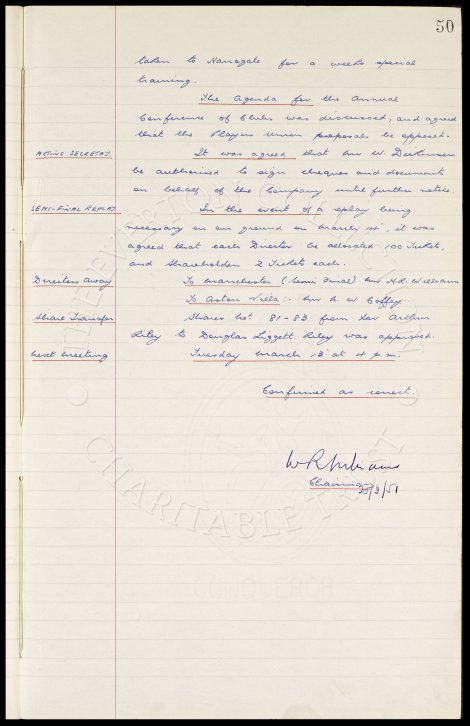 50
taken to Harrogate for a weeks special
training.
The Agenda for the Annual
Conference of Clubs was discussed, and agreed
that the Players Union proposals be opposed.
ACTING SECRETARY. It was agreed that Mr W. Dickinson
be authorised to sign cheques and documents
on behalf of the Company until further notice.
SEMI-FINAL REPLAY. In the event of a replay being
necessary on our ground on March 14, it was
agreed that each Director be allocated 100 Tickets,
and Shareholders 2 Tickets each.
Directors away To Manchester (Semi Final) Mr W.R. Williams
To Aston Villa:- Mr R. W Coffey
Share Transfer Shares Nos. 81-83 from Arthur
Riley to Douglas Liggett Riley was approved.
Next Meeting Tuesday March 13 at 4 p.m.
Confirmed as correct.
W R Williams
Chairman
20/3/51
THE EVERTON COLLECTION
CHARITABLE TRUST
CONQUEROR